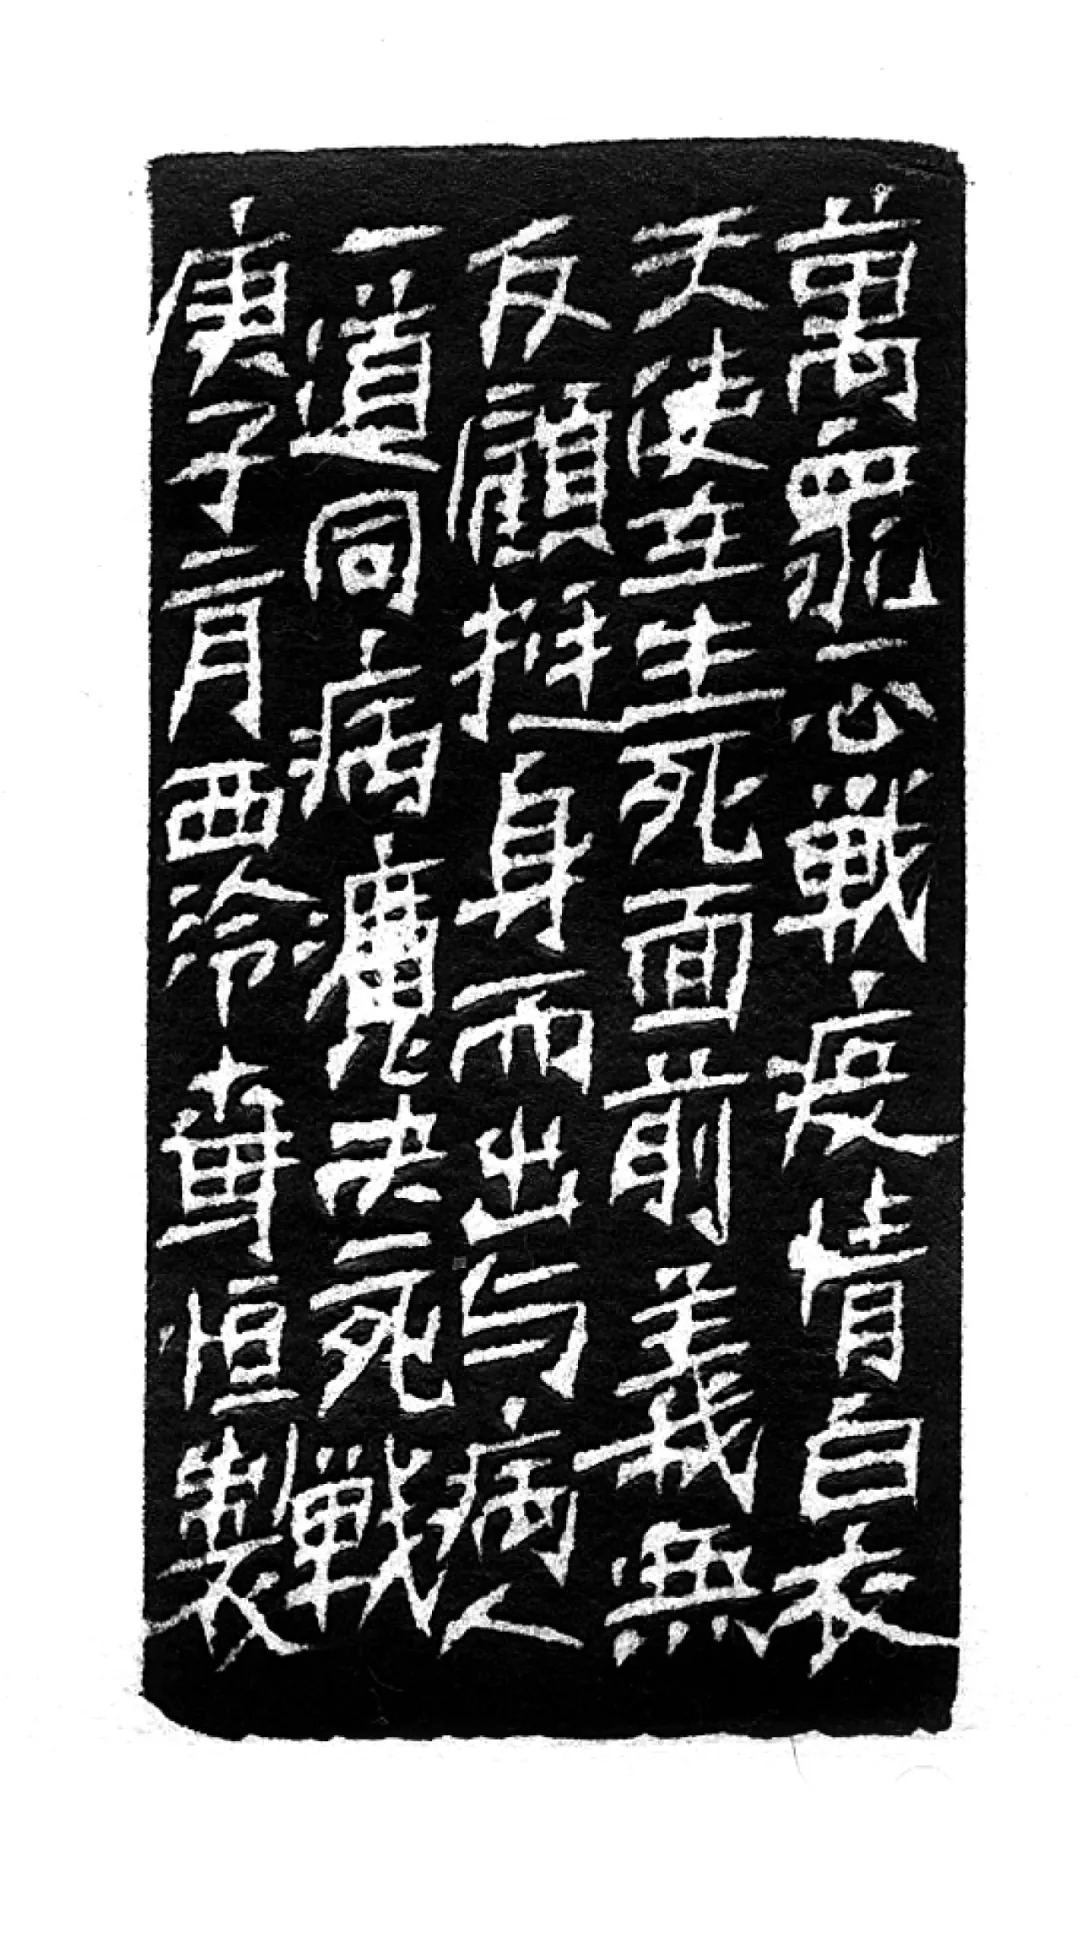 萬眾一心戰疫情白衣
天使在生死面前義無
反顧挺身而出与病人
一道同病魔决一死戰
庚子二月西泠奪恒製